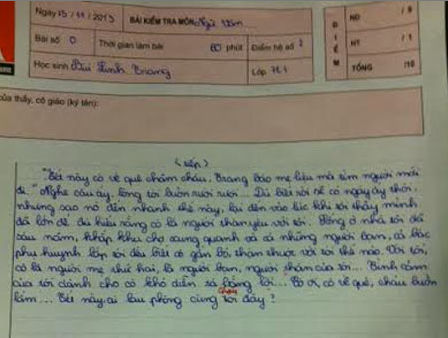 Ngày 15 / 11 / 2013 BÀI KIỂM TRA MÔN: Ngữ Văn
Bài số Thời gian làm bài 60 phút Điểm hệ số 2
Học sinh Bùi Linh Trang Lớp 7E1
ĐIỂM
ND / 9
HT / 1
TỔNG /10
của thầy, cô giáo (ký tên):
(tiếp)
"Tết này cô về quê chăm cháu, Trang bảo mẹ liệu mà tìm người mới
đi." Nghe câu ấy, lòng tôi buồn rười rượi... Dù biết rồi sẽ có ngày ấy thôi,
nhưng sao nó đến nhanh thế này, lại đến vào lúc khi tôi thấy mình
đã lớn để đủ hiểu rằng cô là người thân yêu với tôi. Sống ở nhà tôi đã
sáu năm, khắp khu chợ xung quanh và cả những người bạn, cả bác
phụ huynh lớp tôi đều biết cô gắn bó, thân thuộc với tôi thế nào. Với tôi,
cô là người mẹ thứ hai, là người bạn, người thân của tôi... Tình cảm
của tôi dành cho cô khó diễn tả bằng lời... Cô ơi, cô về quê, cháu buồn
lắm... Tết này, ai lau phòng cùng tôi đây?
cháu